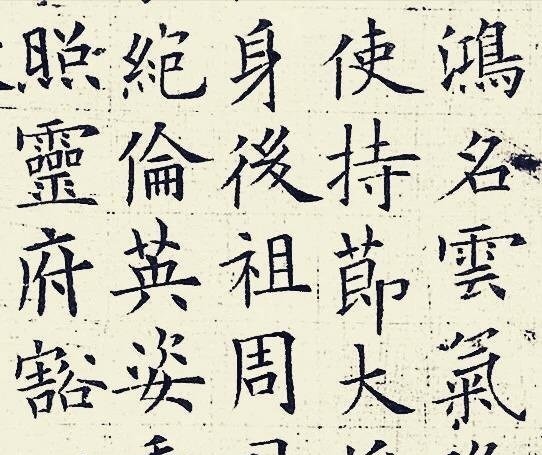 鴻名雲氣
使持節大
身後祖周
絕倫英姿
照靈府豁